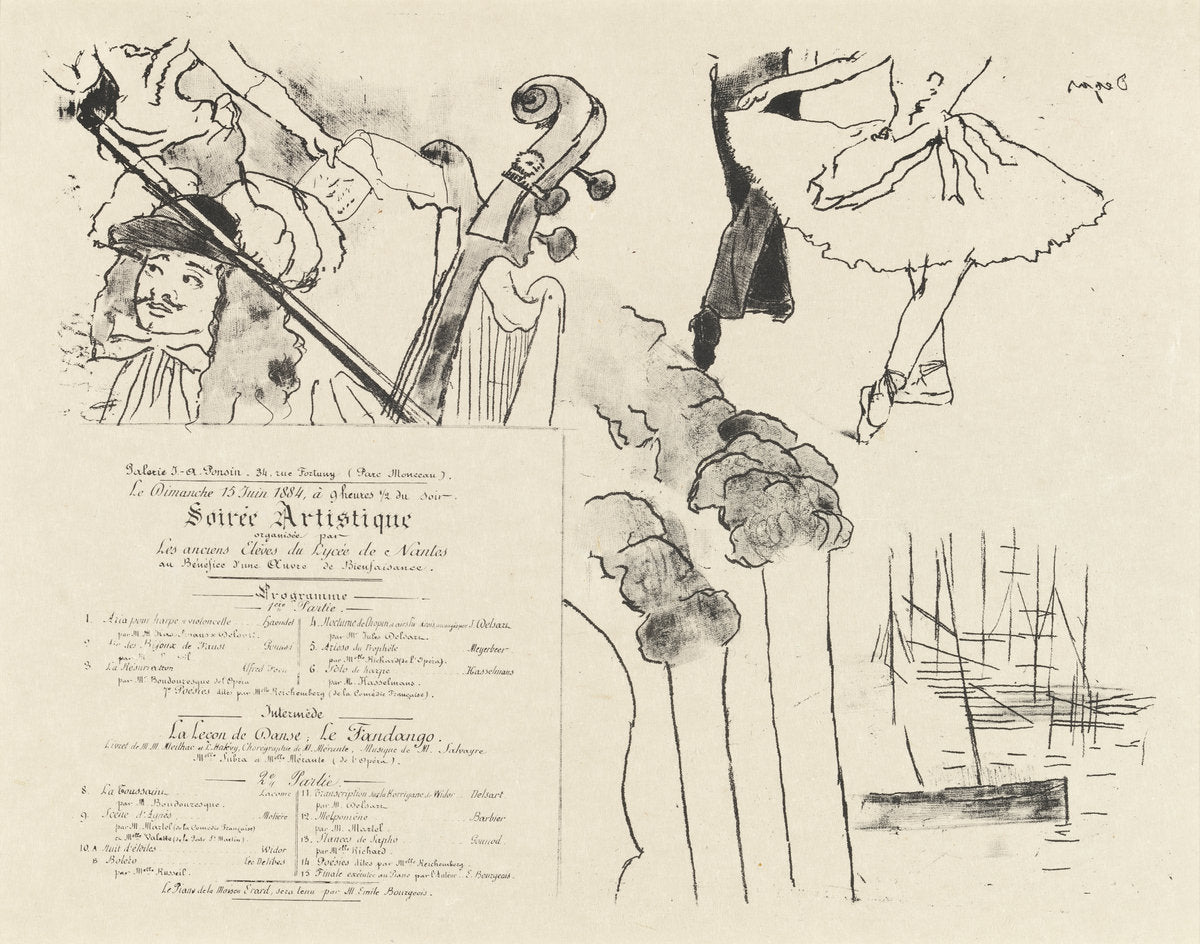 Degas
Galerie J.-A. Ponsin. 34, rue Fortuny (Parc Monceau).
Le Dimanche 15 Juin 1884, à 9 heures 1/2 du soir.
Soirée Artistique
organisée par
Les anciens Elèves du Lycée de Nantes
au Bénéfice d'une Œuvre de Bienfaisance.
Programme
1ère Partie.
1. Aria pour harpe et violoncelle Haendel
par M.M.
2. des Bijoux de Faust Gounod
par
3. La Résurrection Alfred
par Mr Boudouresque de l'Opéra
4. Nocturne de Chopin J. Delsart
par Mr Jules Delsart.
5. Arioso du Prophète Meyerbeer
par Melle Richard (de l'Opéra).
6. Solo de harpe Hasselmans
par M. Hasselmans.
7º Poésies dites par Melle Reichemberg (de la Comédie Française).
Intermède
La Leçon de Danse; Le Fandango.
Livret de M.M. Meilhac et L. Halévy, Chorégraphie de M. Mérante, Musique de M. Salvayre
Melle Subra et Melle Mérante (de l'Opéra).
2e Partie
8. La Toussaint Lacome
par M. Boudouresque.
9. Scène d'Agnès Molière
par M. Martel (de la Comédie Française)
et Melle Valette (de la Porte St Martin)
10. A Nuit d'étoiles Widor
B Boléro Léo Delibes
par Melle Russeil.
11. Transcription sur la Korrigane de Widor Delsart
par M. Delsart
12. Melpomène Barbier
par M. Martel.
13. Stances de Sapho Gounod
par Melle Richard.
14 Poésies dites par Melle Reichemberg.
15. Finale exécutée au Piano par l'Auteur E. Bourgeois.
Le Piano de la Maison Erard, sera tenu par M. Emile Bourgeois.